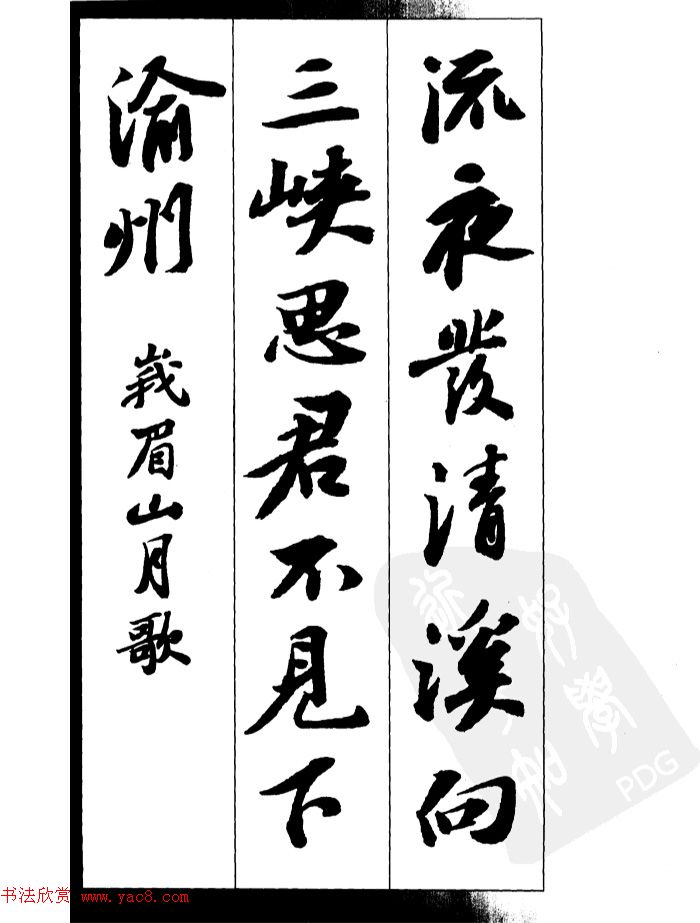 流夜發清溪向
三峽思君不見下
渝州
峨眉山月歌
PDG
书法欣赏 www.yac8.com